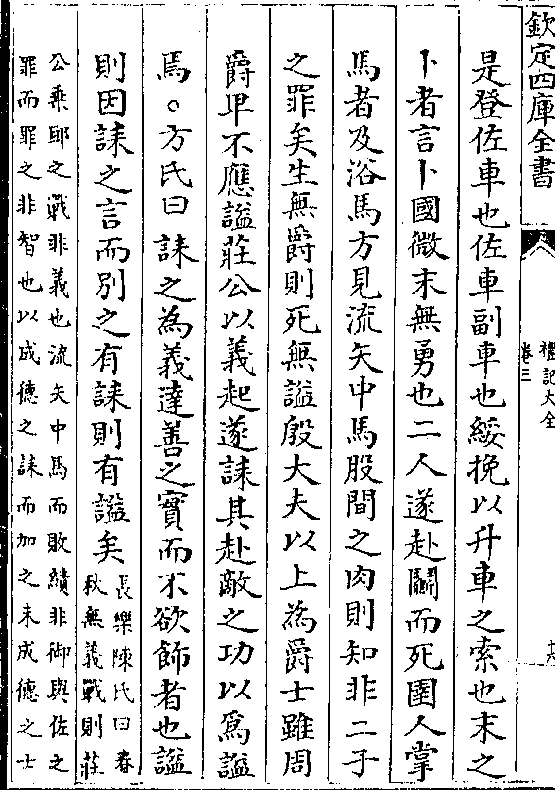 欽定四庫全書
禮記大全
卷三
是登佐車也佐車副車也綏挽以升車之索也末之
卜者言卜國微末無勇也二人遂赴鬭而死圉人掌
馬者及浴馬方見流矢中馬股間之肉則知非二子
之罪矣生無爵則死無諡殷大夫以上為爵士雖周
爵卑不應諡莊公以義起遂誄其赴敵之功以為諡
焉○方氏曰誄之為義達善之實而不欲飾者也諡
則因誄之言而别之有誄則有諡矣
長樂陳氏曰春
秋無義戰則莊
公乗郰之戰非義也流矢中馬而敗績非御與佐之
罪而罪之非智也以成德之誄而加之未成德之士